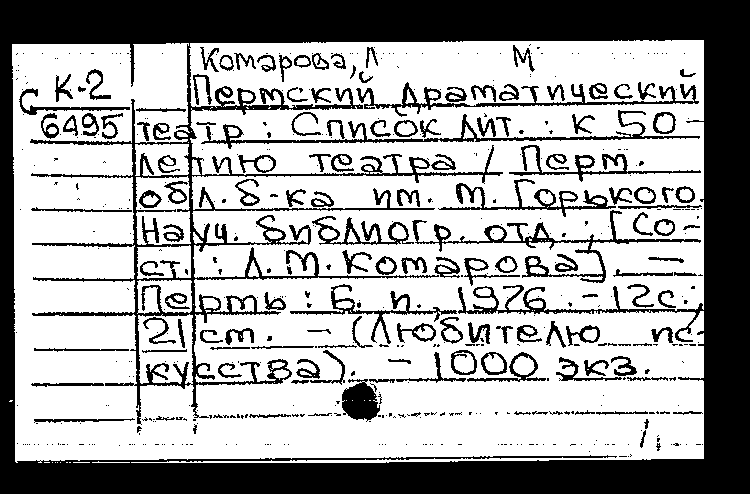 Комарова, Л М
К-2 Пермский драматический
6495 театр : Список лит. : к 50-
летию театра / Перм.
обл. б-ка им. М. Горького.
Науч. библиогр. отд. ; [Со-
ст. : Л. М. Комарова]. —
Пермь : Б. и., 1976. - 12с. ;
21 см. - (Любителю ис-
кусства). - 1000 экз.